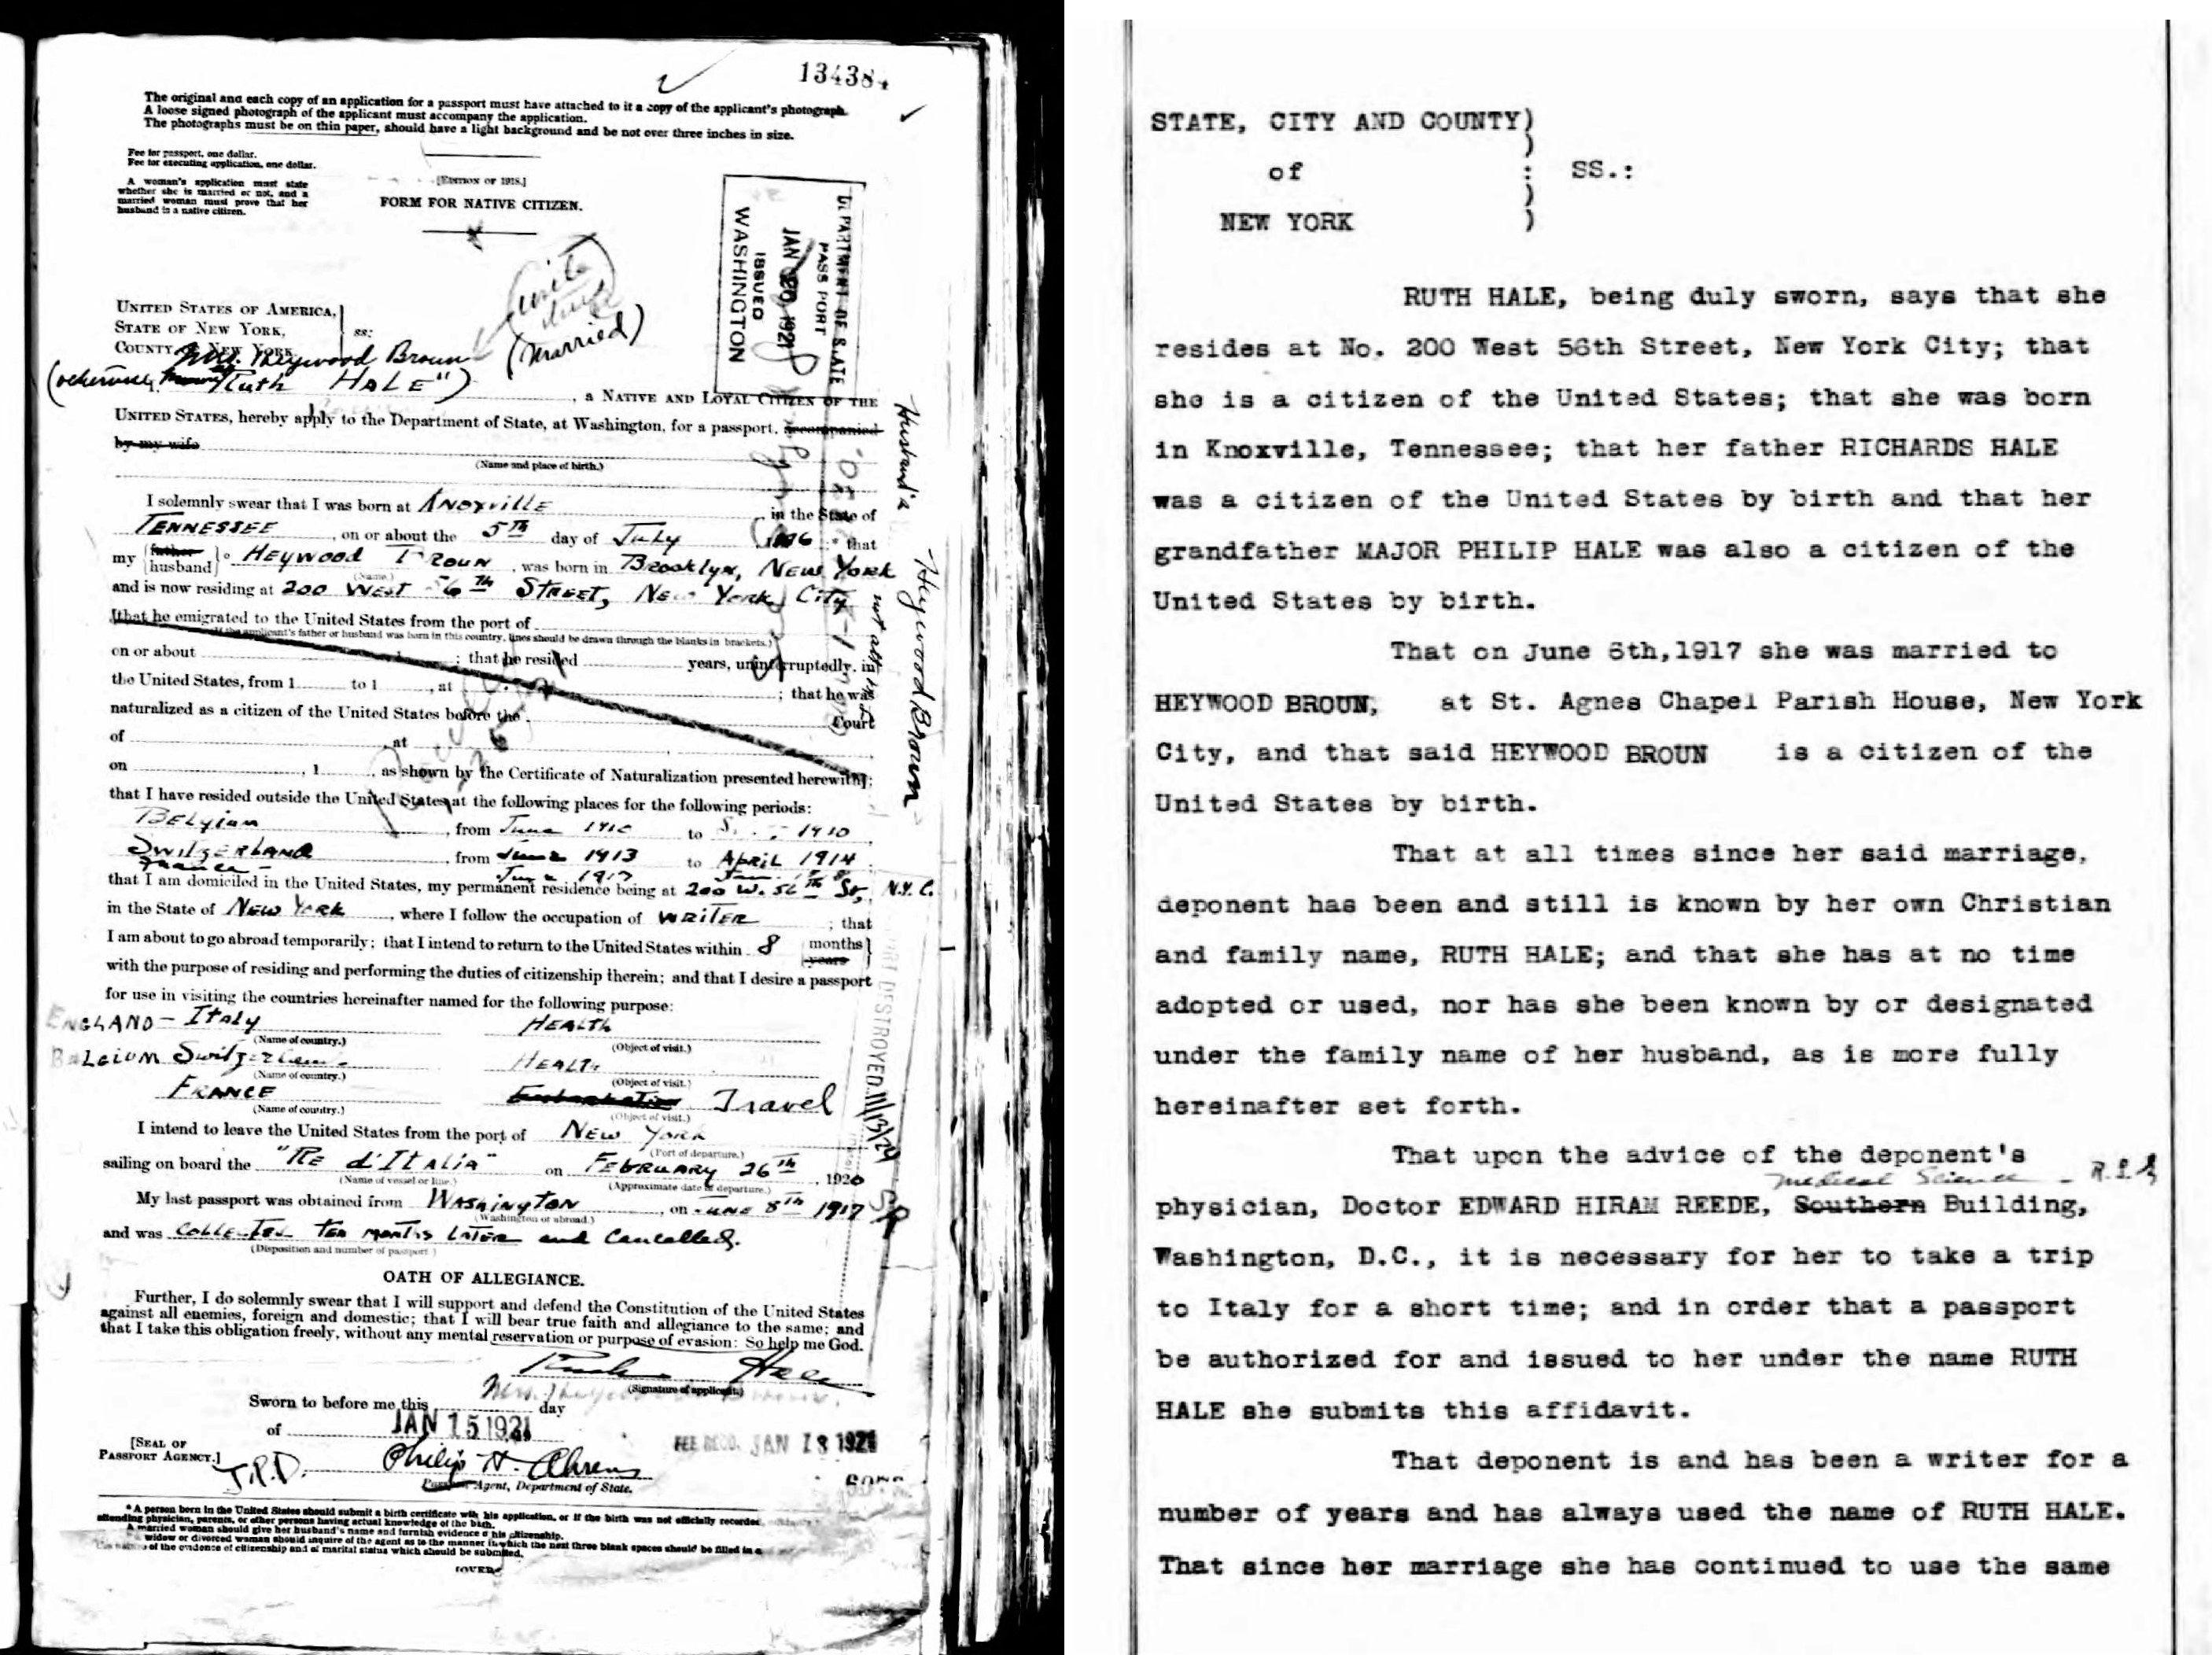 134384
The original and each copy of an application for a passport must have attached to it a copy of the applicant's photograph.
A loose signed photograph of the applicant must accompany the application.
The photographs must be on thin paper, should have a light background and be not over three inches in size.
Fee for passport, one dollar.
Fee for executing application, one dollar.
A woman's application must state
whether she is married or not, and a
married woman must prove that her
husband is a native citizen.
[EDITION OF 1918.]
FORM FOR NATIVE CITIZEN.
DEPARTMENT OF STATE
PASSPORT
JAN 20 1921
ISSUED
WASHINGTON
UNITED STATES OF AMERICA,
STATE OF NEW YORK,
ss:
COUNTY OF NEW YORK.
Mrs. Heywood Broun (married)
(otherwise Ruth HALE")
, a NATIVE AND LOYAL CITIZEN OF THE
UNITED STATES, hereby apply to the Department of State, at Washington, for a passport, accompanied
by my wife
(Name and place of birth.)
I solemnly swear that I was born at KNOXVILLE, in the State of
TENNESSEE, on or about the 5TH day of July * that
my {father husband} Heywood BROUN, was born in Brooklyn, NEW YORK
and is now residing at 200 WEST 56TH STREET, New York City
[that he emigrated to the United States from the port of
(If the applicant's father or husband was born in this country, lines should be drawn through the blanks in brackets.)
on or about ; that he resided years, uninterruptedly, in
the United States, from 1 to 1, at ; that he was
naturalized as a citizen of the United States before the Court
of , at
on , 1 , as shown by the Certificate of Naturalization presented herewith];
that I have resided outside the United States at the following places for the following periods:
BELgium, from June 1910 to 1910
SWITZERLAND, from June 1913 to APRIL 1914
France June 1917 Jan.
that I am domiciled in the United States, my permanent residence being at 200 W. 56TH St, N.Y.C.
in the State of NEW YORK, where I follow the occupation of WRITER ; that
I am about to go abroad temporarily; that I intend to return to the United States within 8 {months years}
with the purpose of residing and performing the duties of citizenship therein; and that I desire a passport
for use in visiting the countries hereinafter named for the following purpose:
ENGLAND - ITALY HEALTH
(Name of country.) (Object of visit.)
BELGIUM Switzerland HEALTH
(Name of country.) (Object of visit.)
FRANCE Travel
(Name of country.) (Object of visit.)
I intend to leave the United States from the port of NEW YORK
(Port of departure.)
sailing on board the "RE d'ITALIA" on FEBRUARY 26TH, 1920
(Name of vessel or line.) (Approximate date of departure.)
My last passport was obtained from WASHINGTON, on JUNE 8TH 1917
(Washington or abroad.)
and was COLLECTED TEN MONTHS LATER and Cancelled.
(Disposition and number of passport.)
OATH OF ALLEGIANCE.
Further, I do solemnly swear that I will support and defend the Constitution of the United States
against all enemies, foreign and domestic; that I will bear true faith and allegiance to the same; and
that I take this obligation freely, without any mental reservation or purpose of evasion: So help me God.
Ruth Hale
(Signature of applicant.)
Sworn to before me this day
of JAN 15 1921
FEE RECD. JAN 18 1921
[SEAL OF
PASSPORT AGENCY.]
J.P.D.
Philip H. Ahrens
Agent, Department of State.
* A person born in the United States should submit a birth certificate with his application, or if the birth was not officially recorded
attending physician, parents, or other persons having actual knowledge of the birth.
A married woman should give her husband's name and furnish evidence of his citizenship.
widow or divorced woman should inquire of the agent as to the manner in which the next three blank spaces should be filled in
of the evidence of citizenship and of marital status which should be submitted.
(OVER)
Husband is
Heywood Broun
DESTROYED 11/13/24
STATE, CITY AND COUNTY)
of : SS.:
NEW YORK )
RUTH HALE, being duly sworn, says that she
resides at No. 200 West 56th Street, New York City; that
she is a citizen of the United States; that she was born
in Knoxville, Tennessee; that her father RICHARDS HALE
was a citizen of the United States by birth and that her
grandfather MAJOR PHILIP HALE was also a citizen of the
United States by birth.
That on June 6th,1917 she was married to
HEYWOOD BROUN, at St. Agnes Chapel Parish House, New York
City, and that said HEYWOOD BROUN is a citizen of the
United States by birth.
That at all times since her said marriage,
deponent has been and still is known by her own Christian
and family name, RUTH HALE; and that she has at no time
adopted or used, nor has she been known by or designated
under the family name of her husband, as is more fully
hereinafter set forth.
That upon the advice of the deponent's
medical Science
physician, Doctor EDWARD HIRAM REEDE, Southern Building,
Washington, D.C., it is necessary for her to take a trip
to Italy for a short time; and in order that a passport
be authorized for and issued to her under the name RUTH
HALE she submits this affidavit.
That deponent is and has been a writer for a
number of years and has always used the name of RUTH HALE.
That since her marriage she has continued to use the same